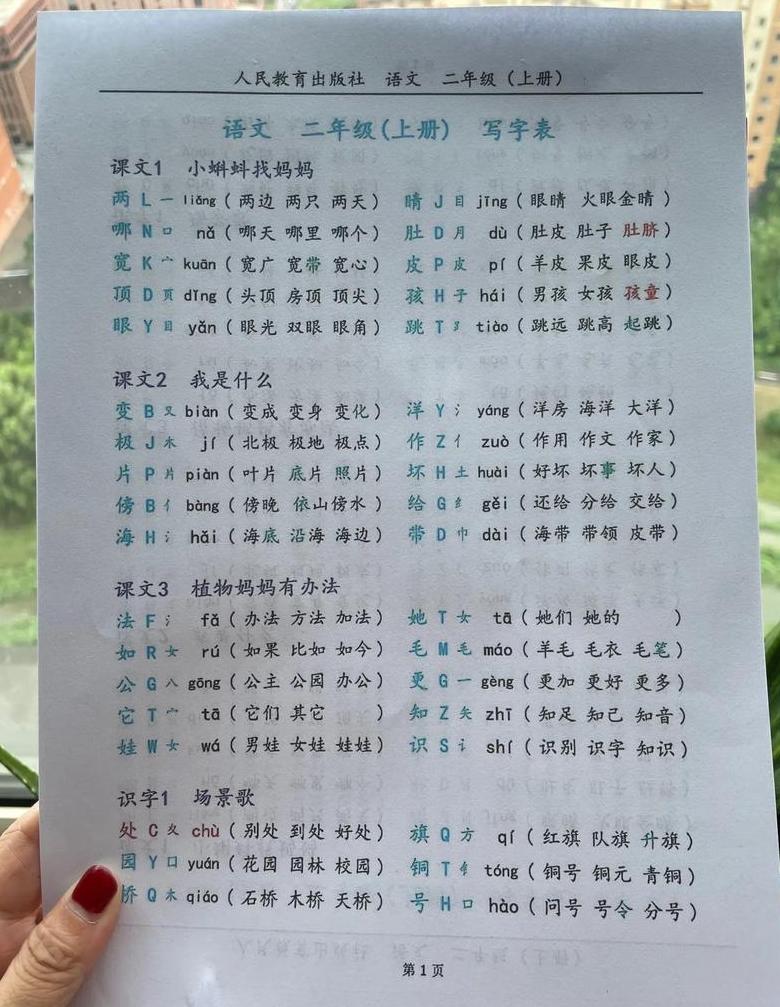 人民教育出版社 语文 二年级（上册）
语文 二年级(上册) 写字表
课文1 小蝌蚪找妈妈
两 L 一 liǎng（两边 两只 两天） 睛 J 目 jīng（眼睛 火眼金睛）
哪 N 口 nǎ（哪天 哪里 哪个） 肚 D 月 dù（肚皮 肚子 肚脐）
宽 K 宀 kuān（宽广 宽带 宽心） 皮 P 皮 pí（羊皮 果皮 眼皮）
顶 D 页 dǐng（头顶 房顶 顶尖） 孩 H 子 hái（男孩 女孩 孩童）
眼 Y 目 yǎn（眼光 双眼 眼角） 跳 T ⻊ tiào（跳远 跳高 起跳）
课文2 我是什么
变 B 又 biàn（变成 变身 变化） 洋 Y 氵 yáng（洋房 海洋 大洋）
极 J 木 jí（北极 极地 极点） 作 Z 亻 zuò（作用 作文 作家）
片 P 片 piàn（叶片 底片 照片） 坏 H 土 huài（好坏 坏事 坏人）
傍 B 亻 bàng（傍晚 依山傍水） 给 G 纟 gěi（还给 分给 交给）
海 H 氵 hǎi（海底 沿海 海边） 带 D 巾 dài（海带 带领 皮带）
课文3 植物妈妈有办法
法 F 氵 fǎ（办法 方法 加法） 她 T 女 tā（她们 她的 ）
如 R 女 rú（如果 比如 如今） 毛 M 毛 máo（羊毛 毛衣 毛笔）
公 G 八 gōng（公主 公园 办公） 更 G 一 gèng（更加 更好 更多）
它 T 宀 tā（它们 其它 ） 知 Z 矢 zhī（知足 知己 知音）
娃 W 女 wá（男娃 女娃 娃娃） 识 S 讠 shí（识别 识字 知识）
识字1 场景歌
处 C 夂 chù（别处 到处 好处） 旗 Q 方 qí（红旗 队旗 升旗）
园 Y 口 yuán（花园 园林 校园） 铜 T 钅 tóng（铜号 铜元 青铜）
桥 Q 木 qiáo（石桥 木桥 天桥） 号 H 口 hào（问号 号令 分号）
第1页